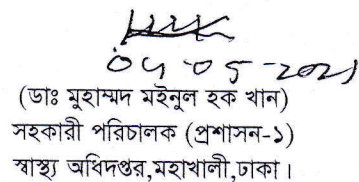 04-05-2021
(ডাঃ মুহাম্মদ মইনুল হক খান)
সহকারী পরিচালক (প্রশাসন-১)
স্বাস্থ্য অধিদপ্তর,মহাখালী,ঢাকা।